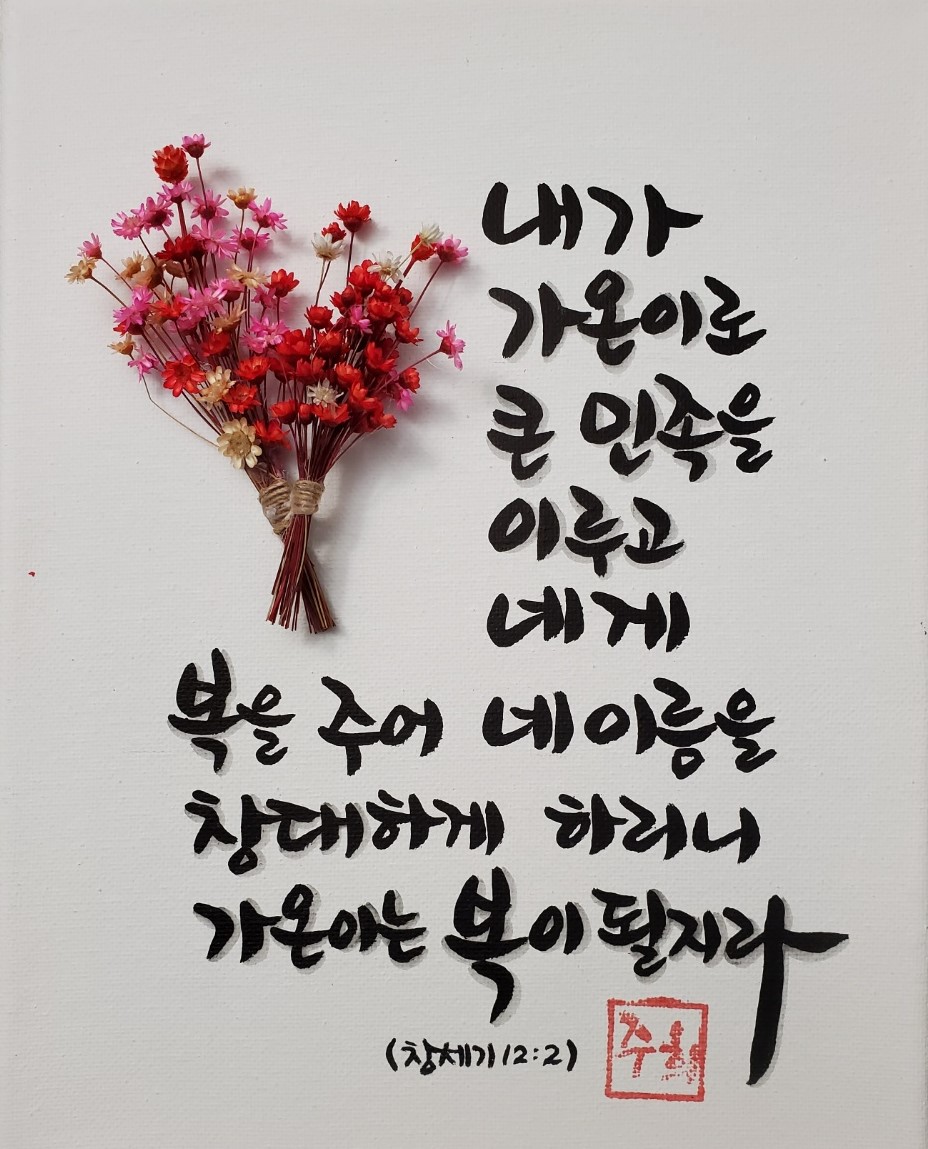 내가
가온이로
큰 민족을
이루고
네게
복을 주어 네 이름을
창대하게 하리니
가온이는 복이 될지라
(창세기 12:2)